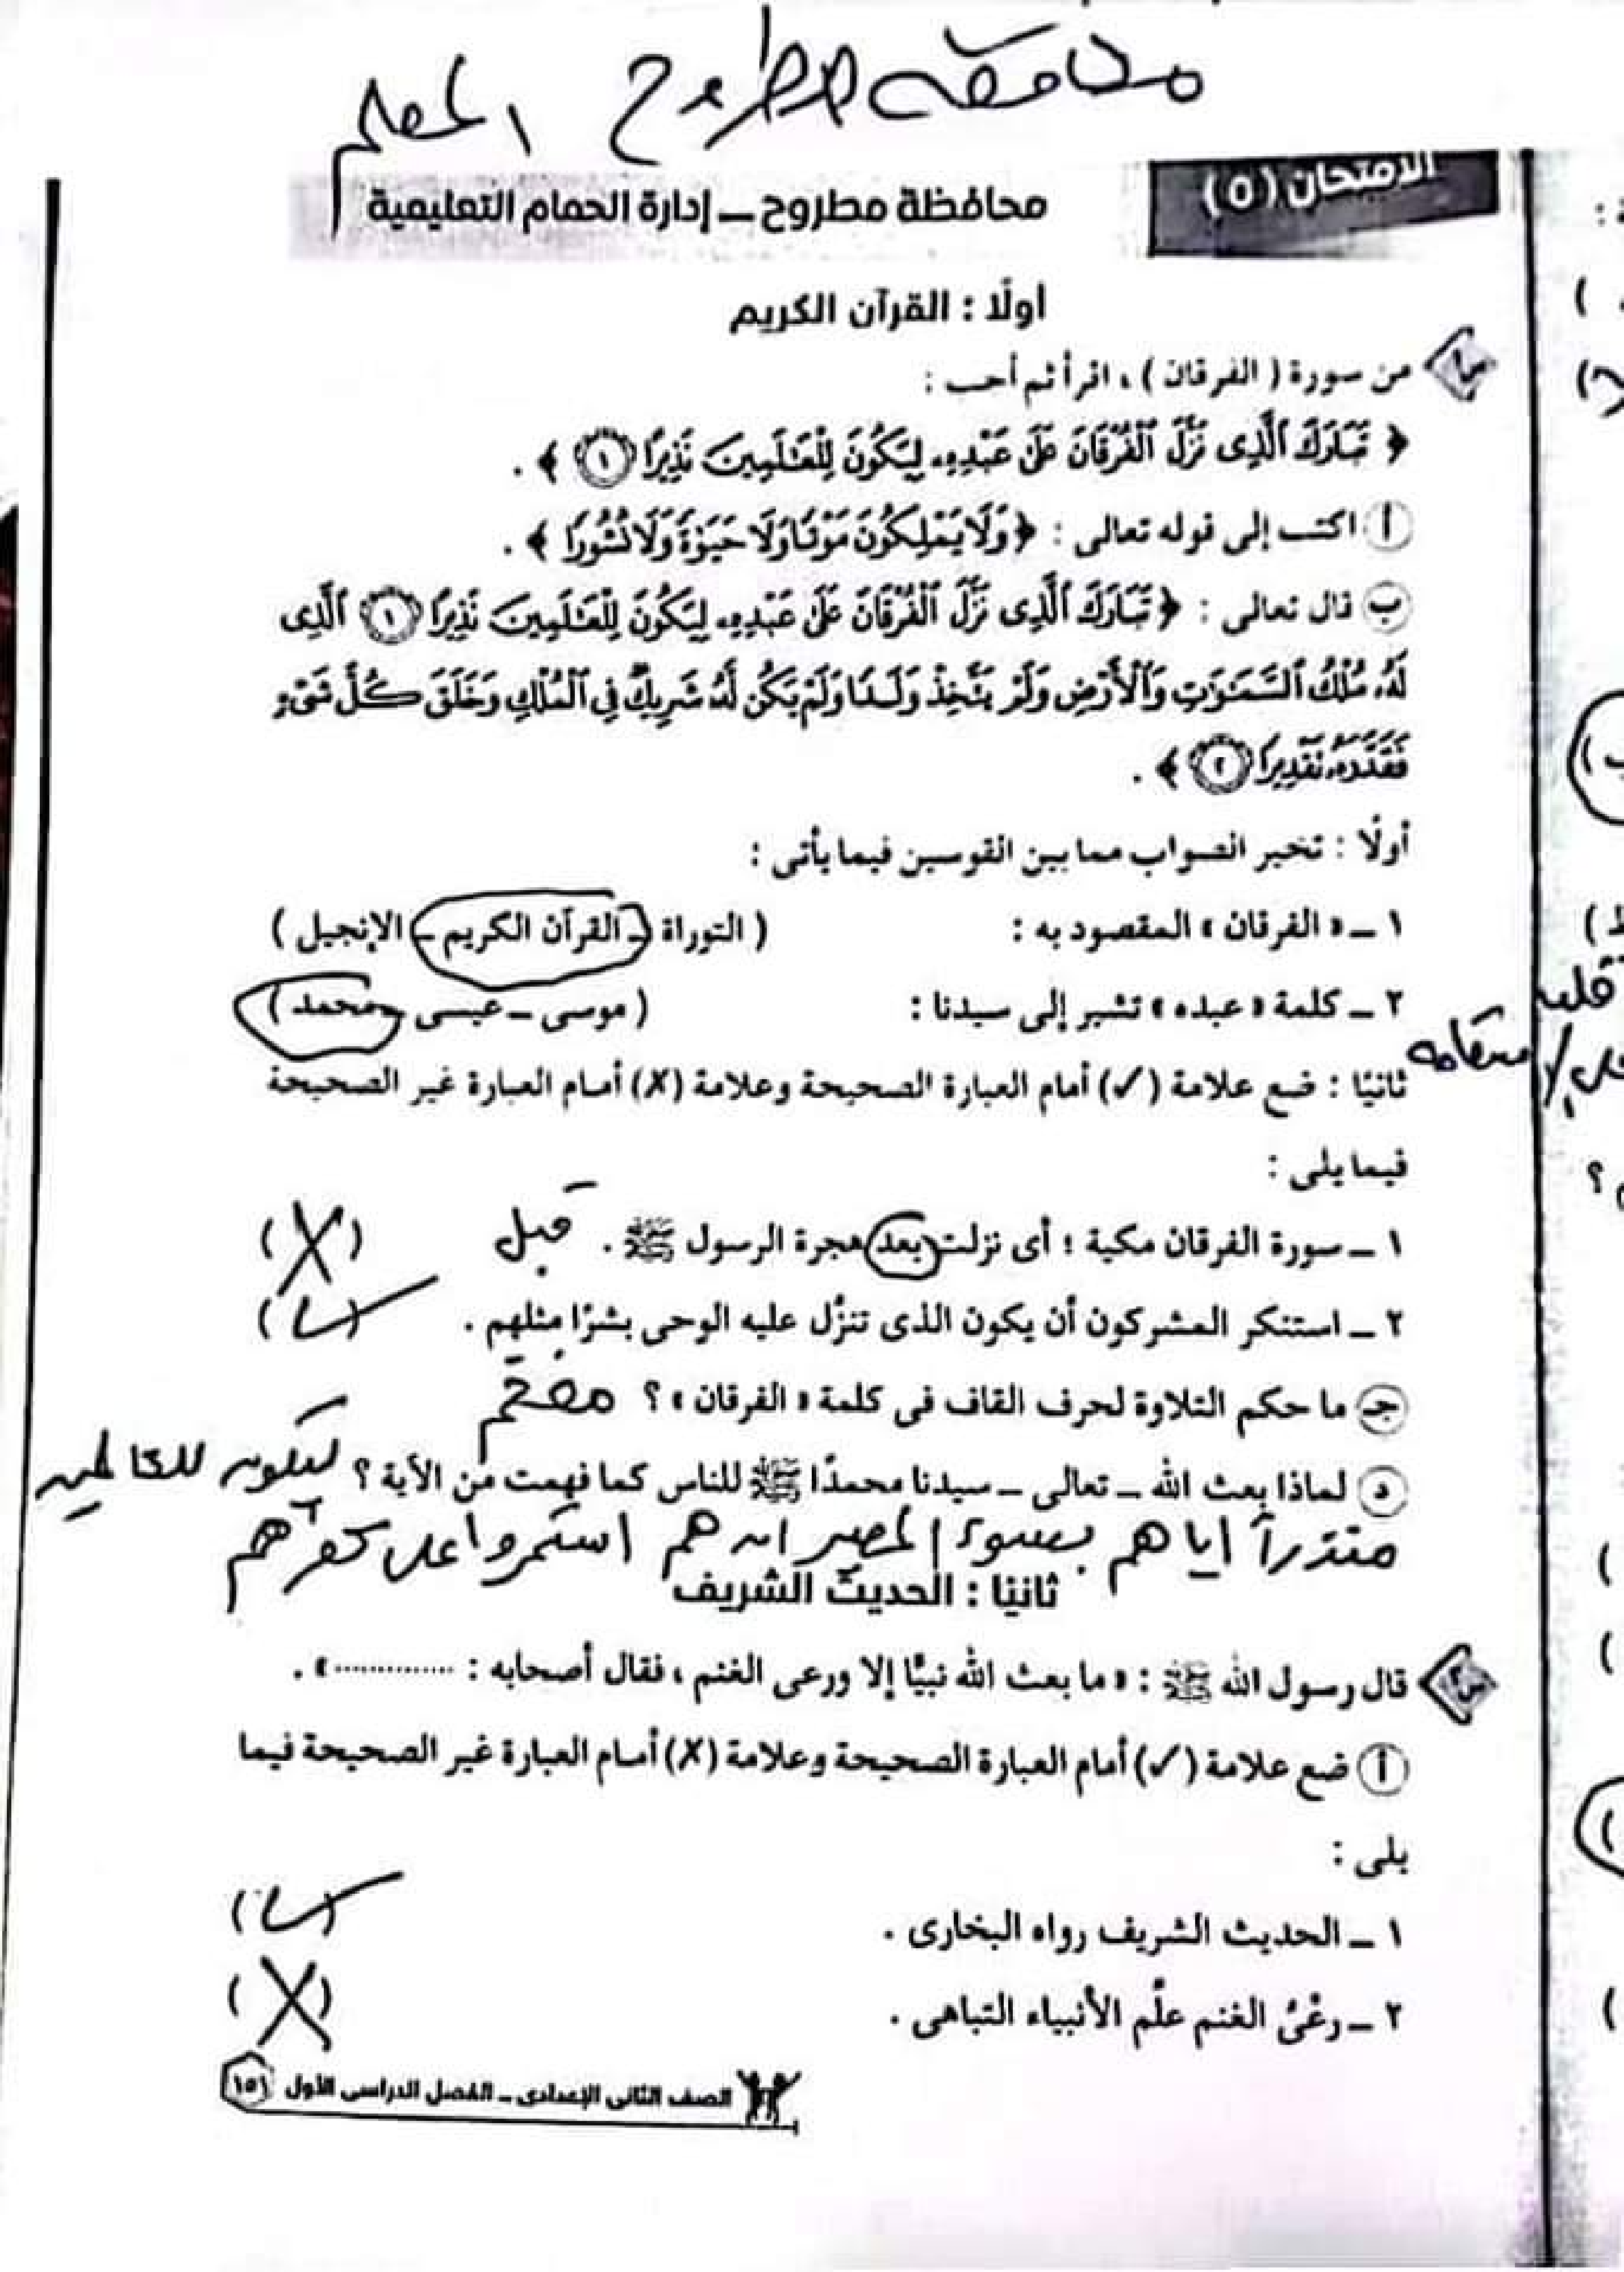 محافظة مطروح المعلم
الامتحان (٥)
محافظة مطروح – إدارة الحمام التعليمية
أولًا : القرآن الكريم
س١ من سورة ( الفرقان ) ، اقرأ ثم أجب :
﴿ تَبَارَكَ ٱلَّذِى نَزَّلَ ٱلْفُرْقَانَ عَلَىٰ عَبْدِهِۦ لِيَكُونَ لِلْعَٰلَمِينَ نَذِيرًا ١ ﴾ .
أ اكتب إلى قوله تعالى : ﴿ وَلَا يَمْلِكُونَ مَوْتًا وَلَا حَيَوٰةً وَلَا نُشُورًا ﴾ .
ب قال تعالى : ﴿ تَبَارَكَ ٱلَّذِى نَزَّلَ ٱلْفُرْقَانَ عَلَىٰ عَبْدِهِۦ لِيَكُونَ لِلْعَٰلَمِينَ نَذِيرًا ١ ٱلَّذِى
لَهُۥ مُلْكُ ٱلسَّمَٰوَٰتِ وَٱلْأَرْضِ وَلَمْ يَتَّخِذْ وَلَدًا وَلَمْ يَكُن لَّهُۥ شَرِيكٌ فِى ٱلْمُلْكِ وَخَلَقَ كُلَّ شَىْءٍ
فَقَدَّرَهُۥ تَقْدِيرًا ٢ ﴾ .
أولًا : تخير الصواب مما بين القوسين فيما يأتى :
١ – « الفرقان » المقصود به : ( التوراة – القرآن الكريم – الإنجيل )
٢ – كلمة « عبده » تشير إلى سيدنا : ( موسى – عيسى – محمد )
ثانيًا : ضع علامة (✓) أمام العبارة الصحيحة وعلامة (✗) أمام العبارة غير الصحيحة
فيما يلى :
١ – سورة الفرقان مكية ؛ أى نزلت بعد هجرة الرسول ﷺ . قبل (✗)
٢ – استنكر المشركون أن يكون الذى تنزَّل عليه الوحى بشرًا مثلهم . (✓)
جـ ما حكم التلاوة لحرف القاف فى كلمة « الفرقان » ؟ مفخم
د لماذا بعث الله – تعالى – سيدنا محمدًا ﷺ للناس كما فهمت من الآية ؟ ليكون للعالمين
منذراً اياهم بسوء المصير ان هم استمروا على كفرهم
ثانيًا : الحديث الشريف
س٢ قال رسول الله ﷺ : « ما بعث الله نبيًّا إلا ورعى الغنم ، فقال أصحابه : ............. » .
أ ضع علامة (✓) أمام العبارة الصحيحة وعلامة (✗) أمام العبارة غير الصحيحة فيما
يلى :
١ – الحديث الشريف رواه البخارى . (✓)
٢ – رعْىُ الغنم علَّم الأنبياء التباهى . (✗)
الصف الثانى الإعدادى – الفصل الدراسى الأول ١٥١